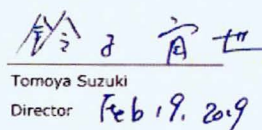 鈴
Tomoya Suzuki
Director Feb 19. 2019